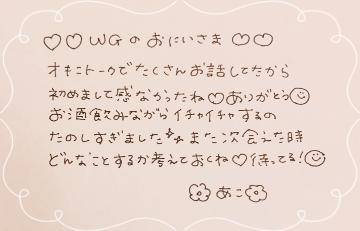 ♡♡ WGのおにいさま ♡♡
オキニトークでたくさんお話してたから
初めまして感なかったね♡ありがとう☺
お酒飲みながらイチャイチャするの
たのしすぎました✨また次会えた時
どんなことするか考えておくね♡待ってる!☺
あこ